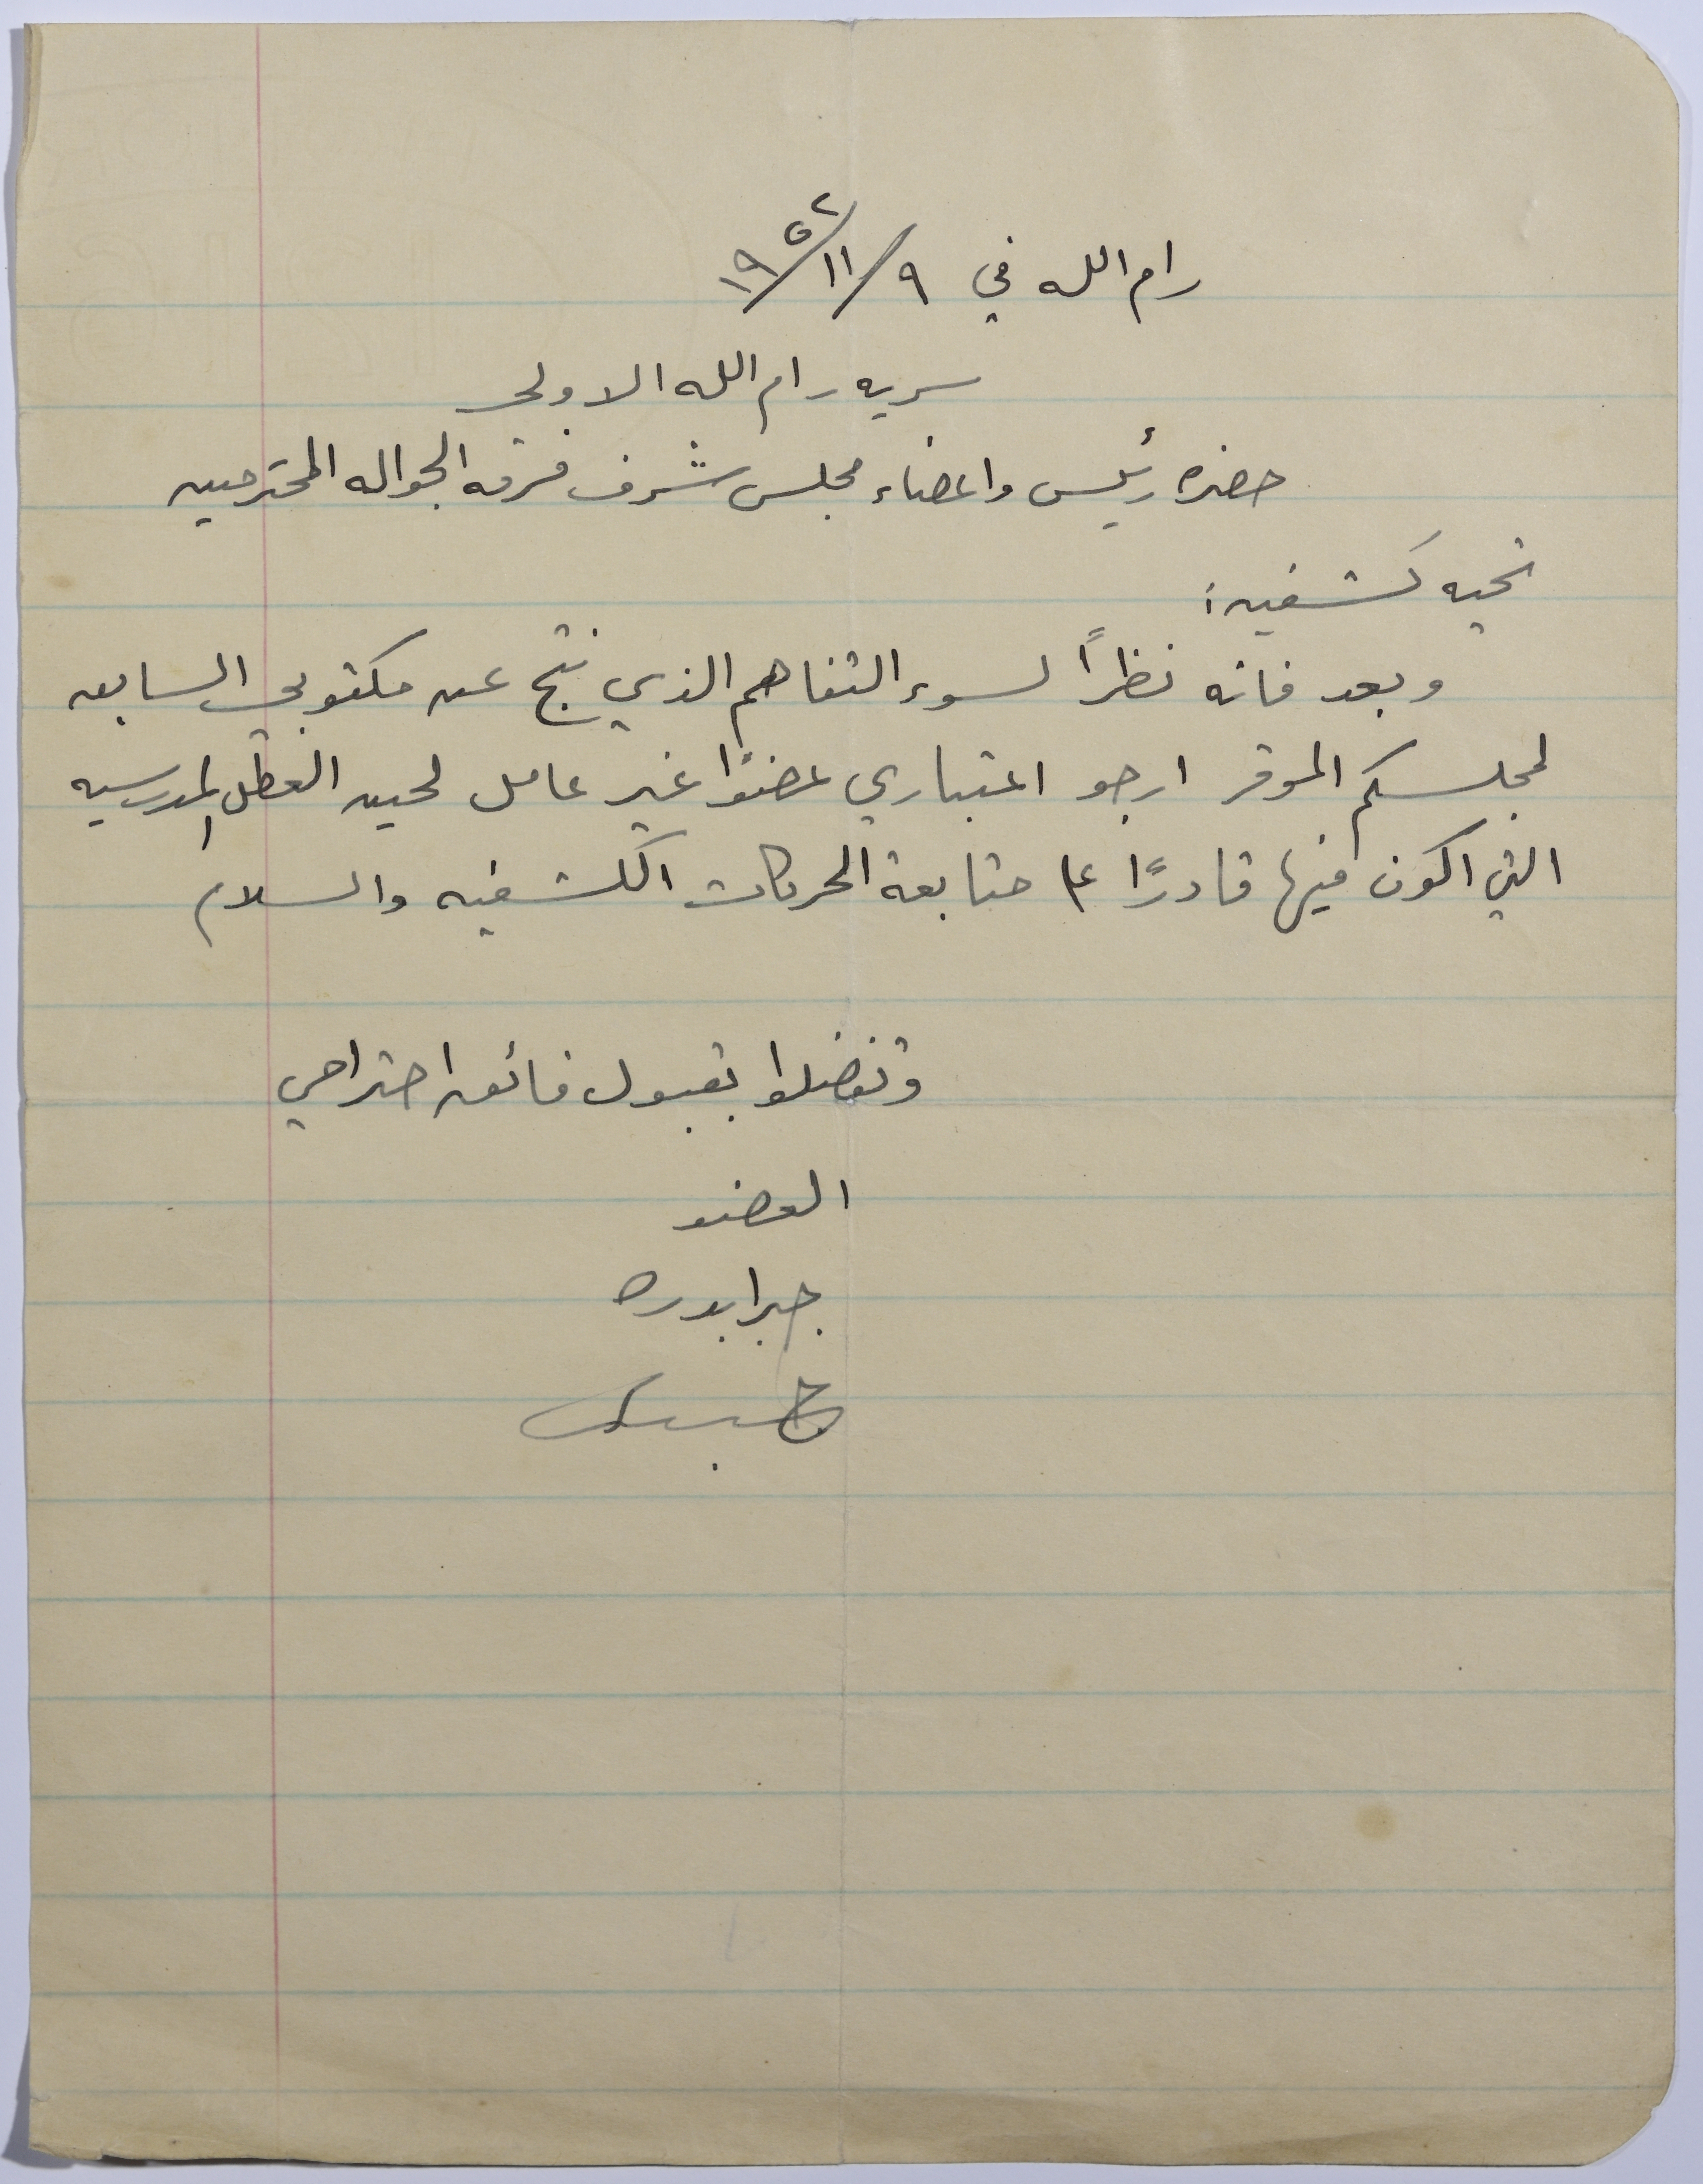 رام الله في ٩/١١/١٩٥٢
سريه رام الله الاولى
حضره رئيس واعضاء مجلس شرف فرقه الجواله المحترمين
تحيه كشفيه:
وبعد فانه نظراً لسوء التفاهم الذي نتج عن مكتوبي السابق
لمجلسكم الموقر ارجو اعتباري عضوًا غير عامل لحين العطل المدرسيه
التي اكون فيها قادرًا على متابعة الحركات الكشفيه والسلام
وتفضلوا بقبول فائق احترامي
العضو
جبرا بدره